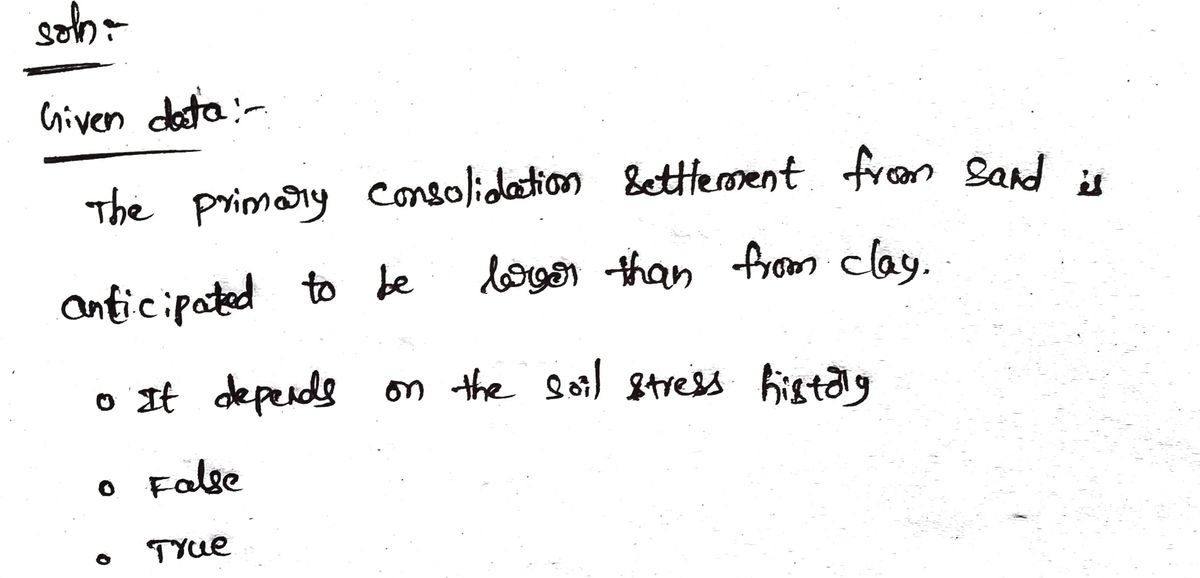 Soln:-
Given data:-
The primary consolidation settlement from sand is
anticipated to be larger than from clay.
o It depends on the soil stress history
o False
o True